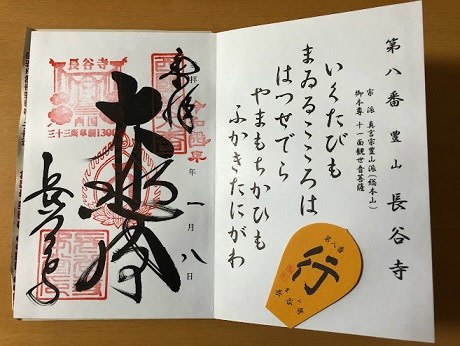 第八番 豊山 長谷寺
宗派 真言宗豊山派(総本山)
御本尊 十一面観世音菩薩
いくたびも
まゐるこころは
はつせでら
やまもちかひも
ふかきたにがわ
第八番
行
奉拝
年一月八日
長谷寺
西国
三十三所草創1300年
大悲閣
長谷寺